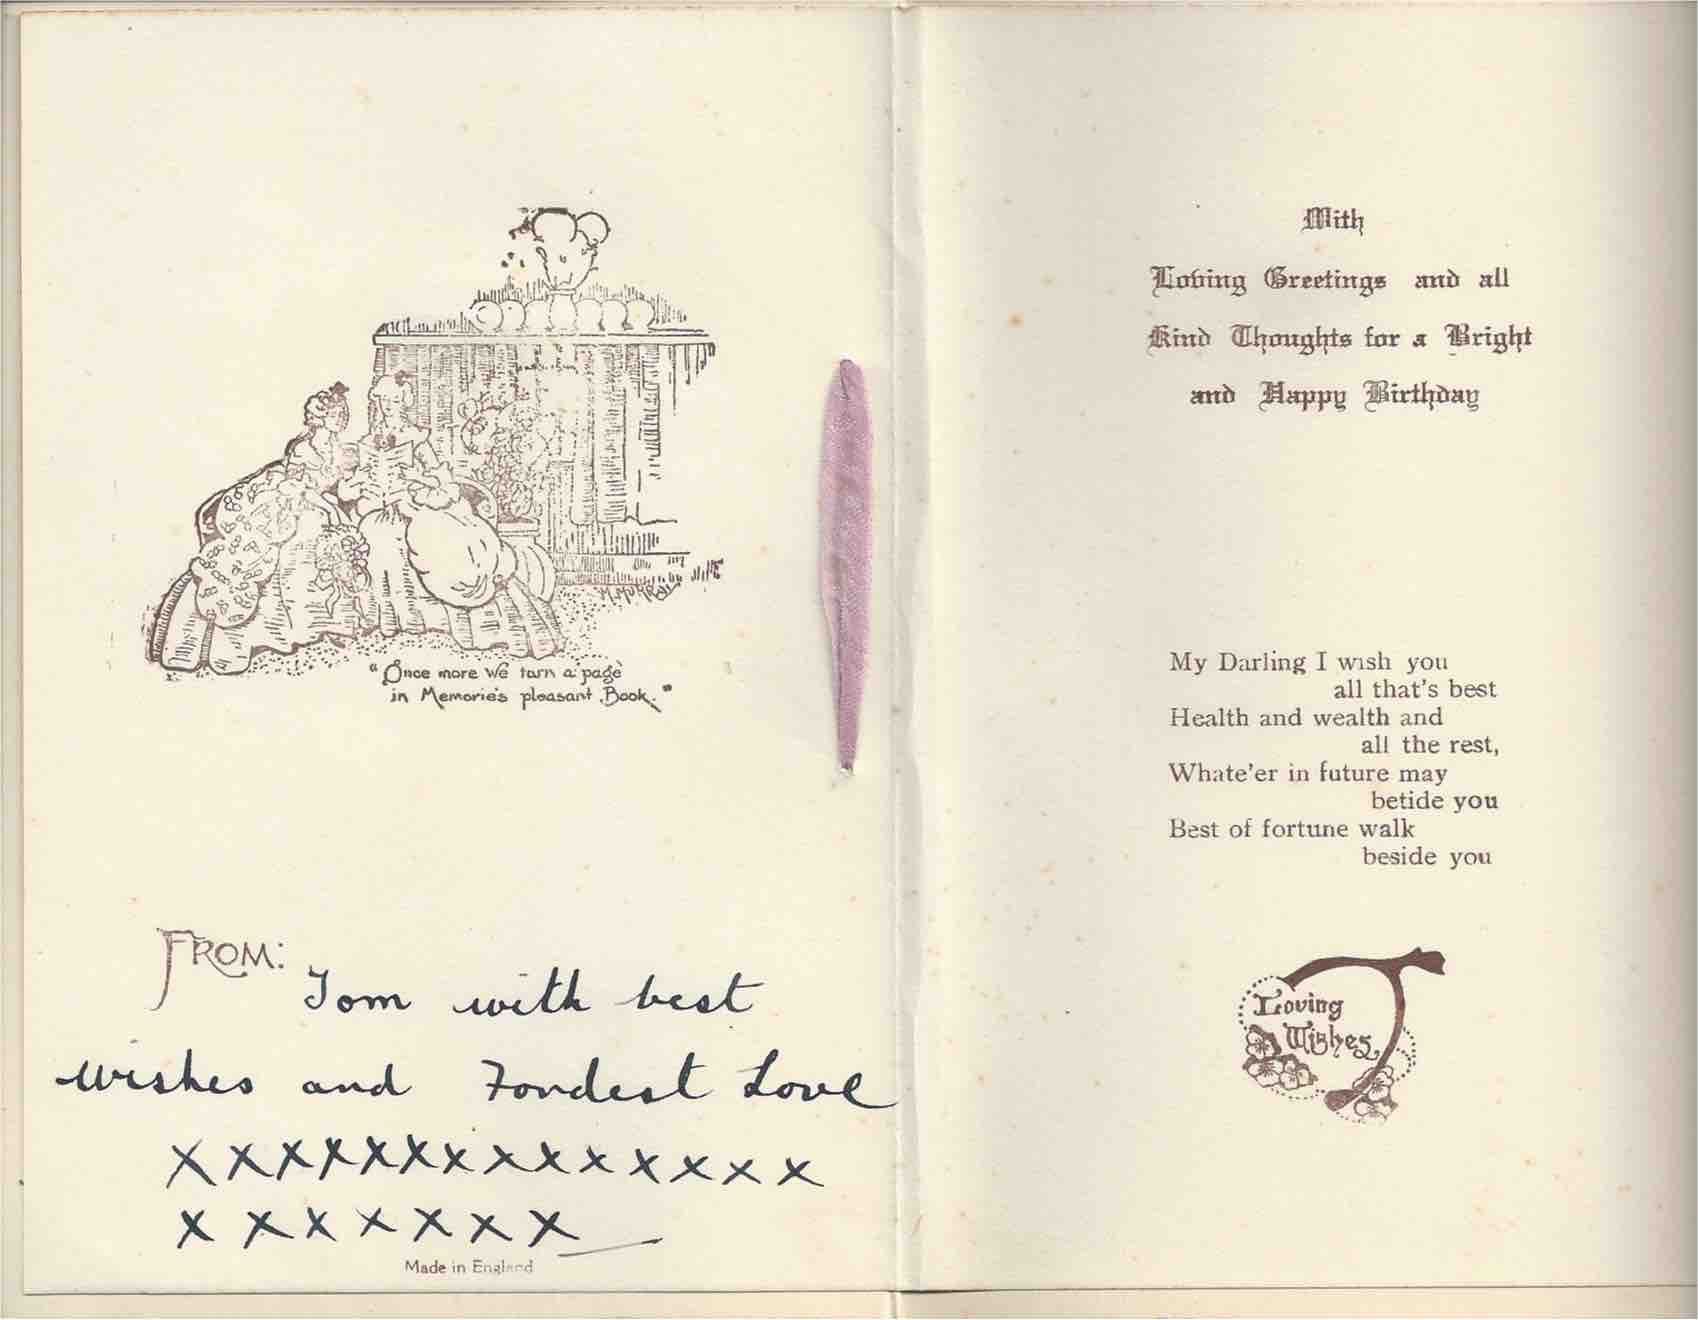 M. MURRAY
"Once more we turn a page
in Memorie's pleasant Book."
FROM:
Tom with best
wishes and Fondest Love
X X X X X X X X X X X X X X
X X X X X X X
Made in England
With
Loving Greetings and all
Kind Thoughts for a Bright
and Happy Birthday
My Darling I wish you
all that's best
Health and wealth and
all the rest,
Whate'er in future may
betide you
Best of fortune walk
beside you
Loving
Wishes